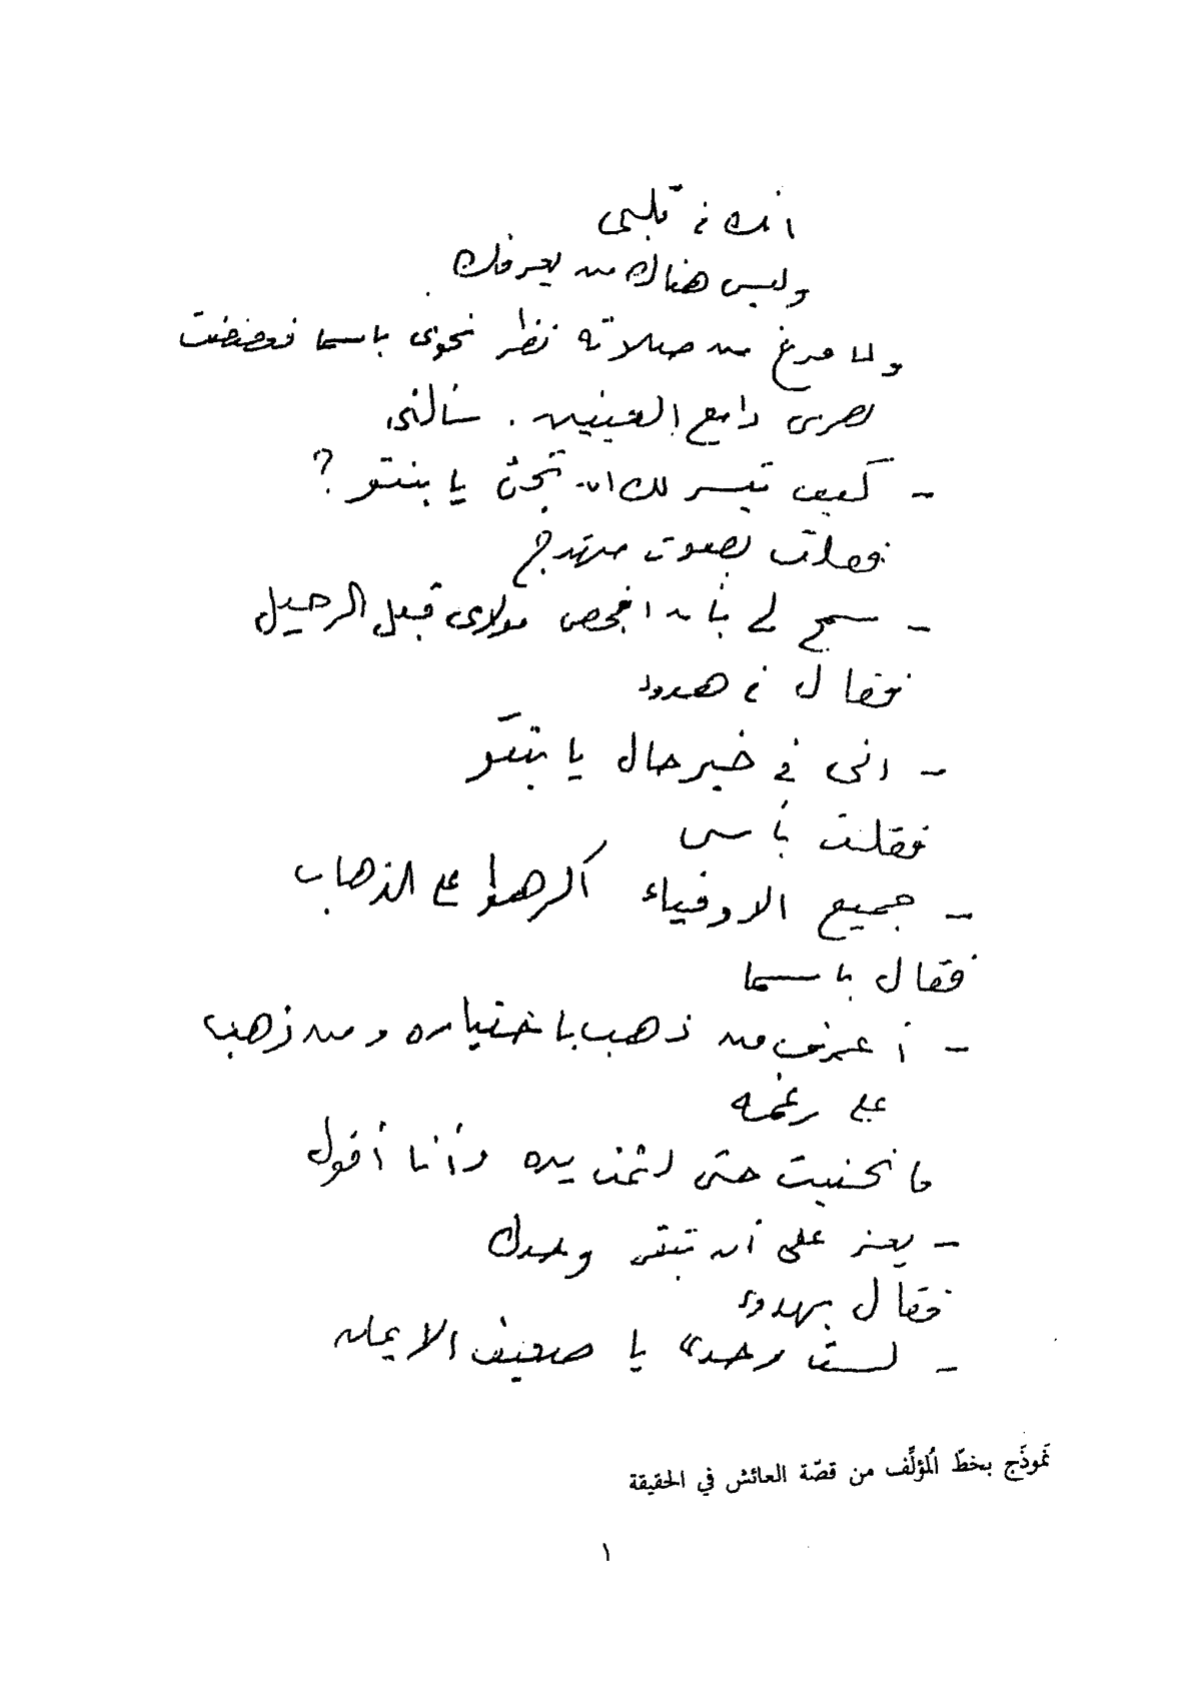 انك في قلبي
وليس هناك من يعرفك
ولما فرغ من صلاته نظر نحوي باسما فغضضت
بصري دامع العينين. سألني
- كيف تيسر لك ان تجئ يا بنتو ؟
فقلت بصوت متهدج
- سمح لي بأن افحص مولاى قبل الرحيل
فقال في هدوء
- انى في خير حال يا بنتو
فقلت بأسى
- جميع الاوفياء اكرهوا على الذهاب
فقال باسما
- أعرف من ذهب باختياره ومن ذهب
على رغمه
فانحنيت حتى لثمت يده وأنا أقول
- يعز على أن تبقى وحدك
فقال بهدوء
- لست وحدى يا ضعيف الايمان
نَموذَج بخطّ المُؤلِّف من قصّة العائش في الحقيقة
١